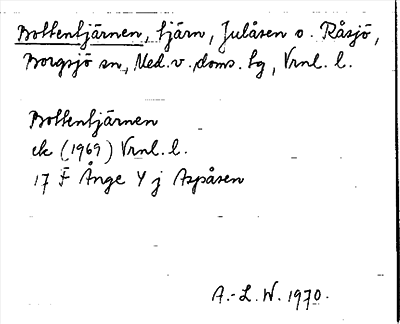 Bottentjärnen, tjärn, Julåsen o. Råsjö,
Borgsjö sn, Med. v. doms. tg, Vrnl. l.
Bottentjärnen
ek (1969) Vrnl. l.
17 F Ånge Y j Aspåsen
A.-L. W. 1970.